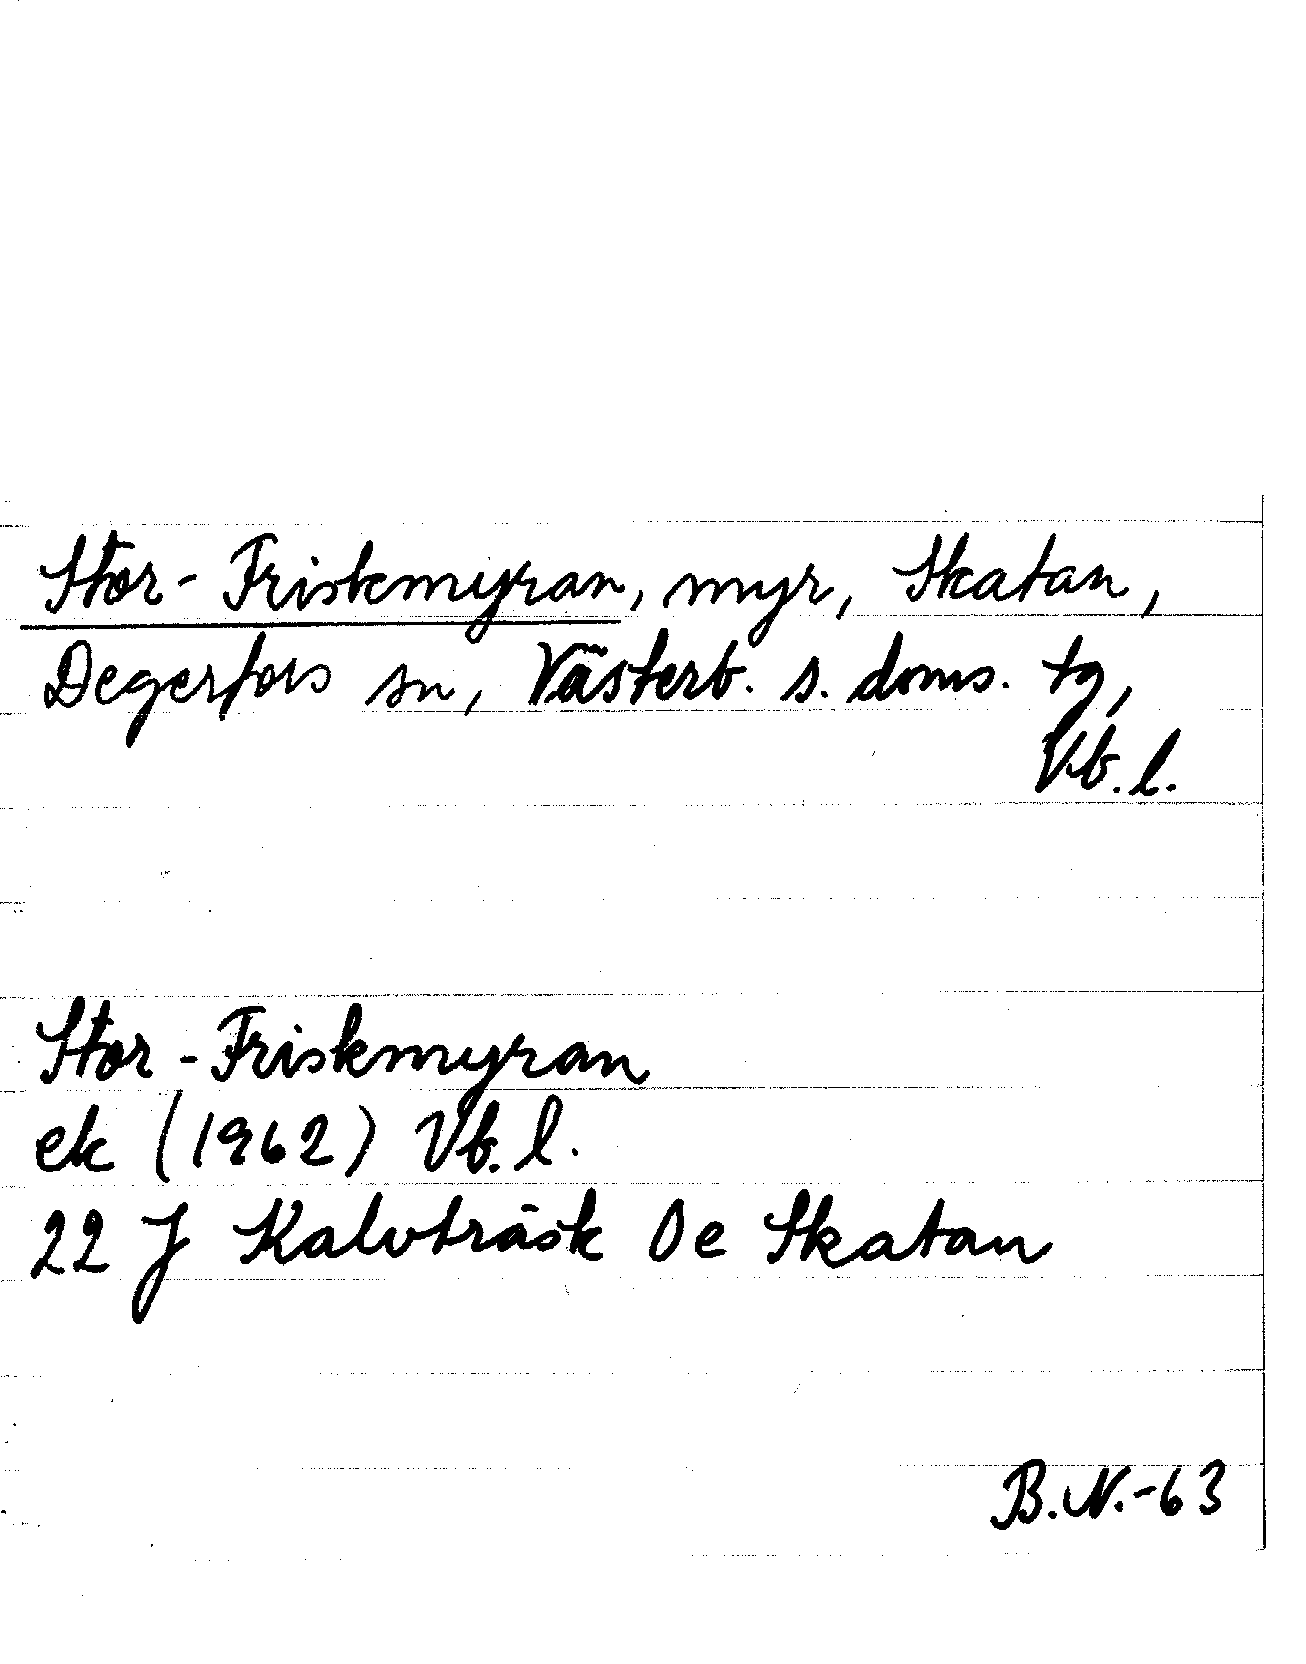 Stor-Friskmyran, myr, Skatan,
Degerfors sn, Västerb. s. doms. tg,
Vb. l.
Stor-Friskmyran
ek (1962) Vb. l.
22 J Kalvträsk 0 e Skatan
B.N.-63